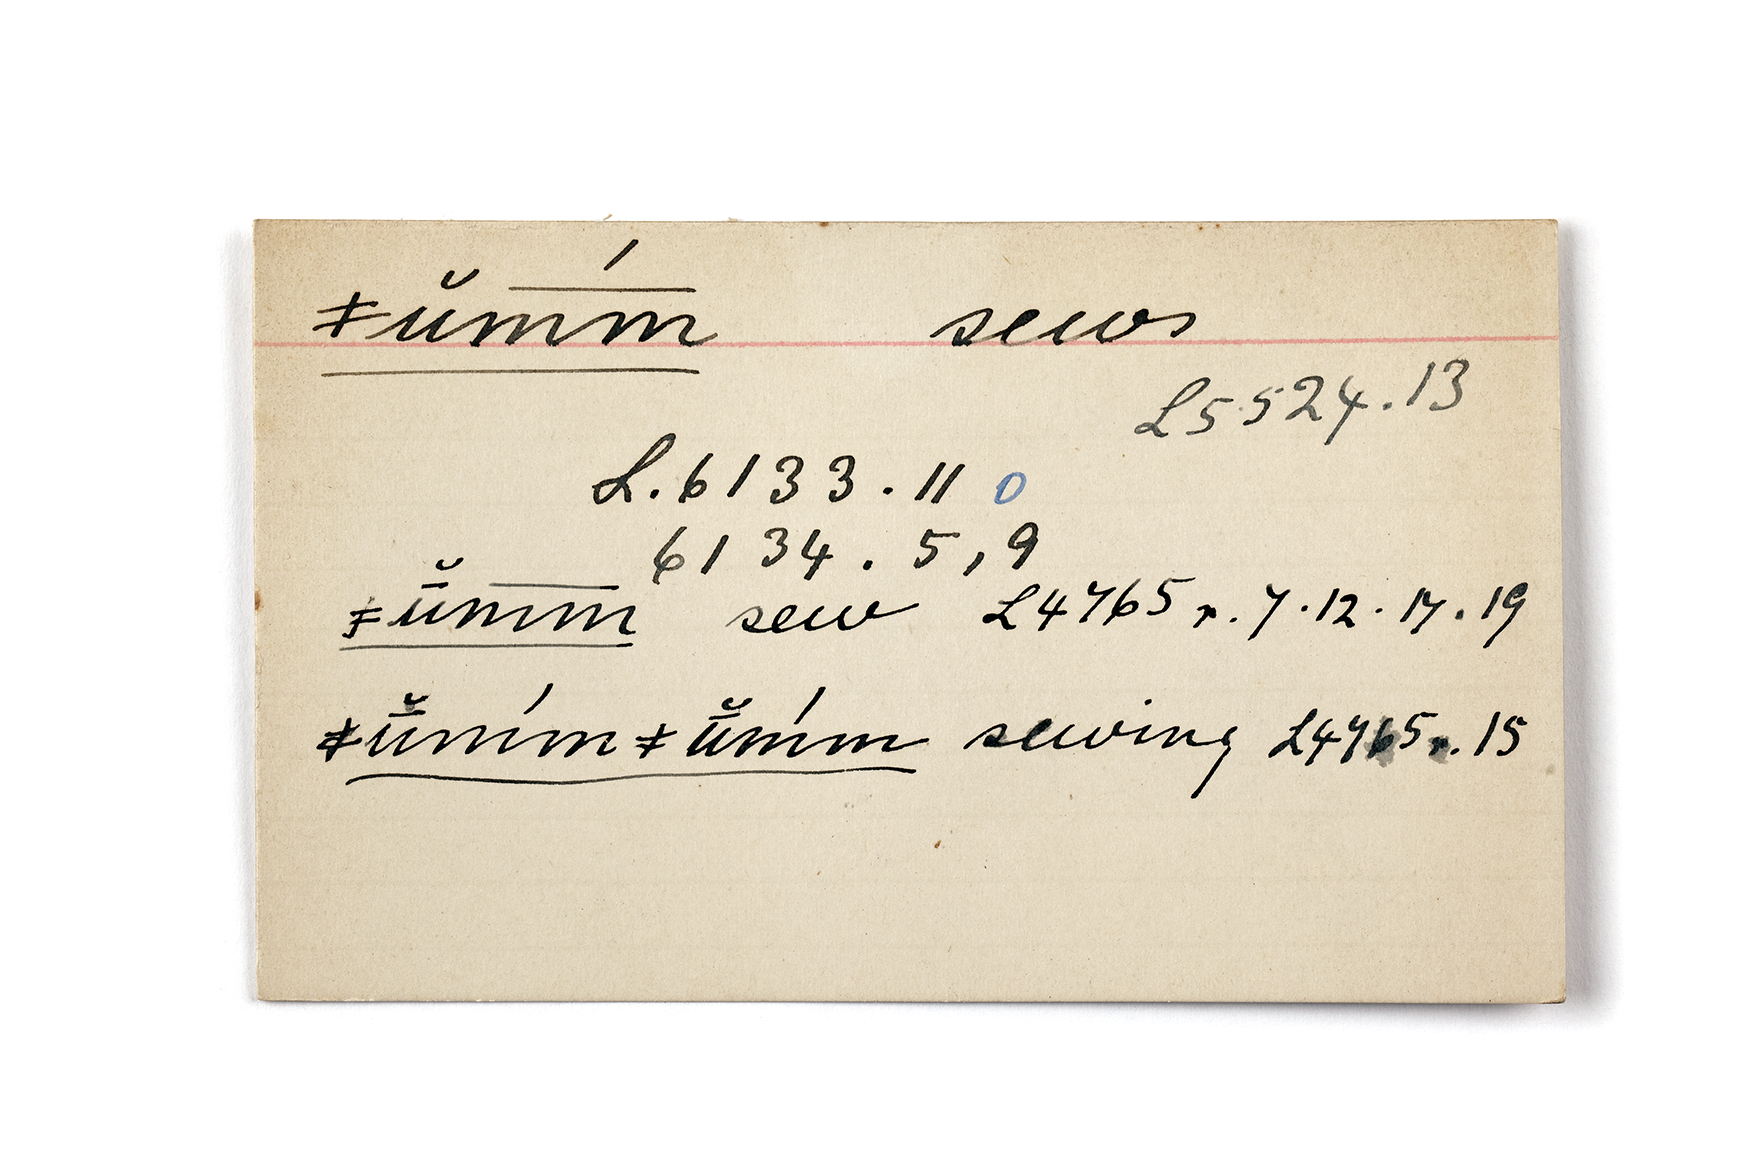 ǂŭm̅ḿ̅ sews
L5524.13
L.6133.11 0
6134.5,9
ǂṵ̄̆m̅m̅ sew L4765 r.7.12.17.19
ǂū̆mḿǂū̆mḿ sewing L4765 r.15